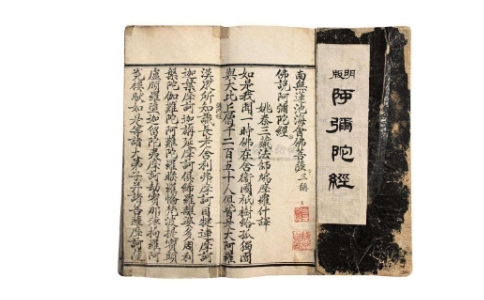 明版
阿彌陀經
南無蓮池海會佛菩薩 三稱
佛說阿彌陀經
姚秦三藏法師鳩摩羅什譯
如是我聞一時佛在舍衛國祇樹給孤獨園
與大比丘僧千二百五十人俱皆是大阿羅
漢眾所知識長老舍利弗摩訶目犍連摩訶
迦葉摩訶迦旃延摩訶俱絺羅離婆多周利
槃陀伽難陀阿難陀羅睺羅憍梵波提賓頭
盧頗羅墮迦留陀夷摩訶劫賓那薄拘羅阿
樓馱如是等諸大弟子并諸菩薩摩訶薩